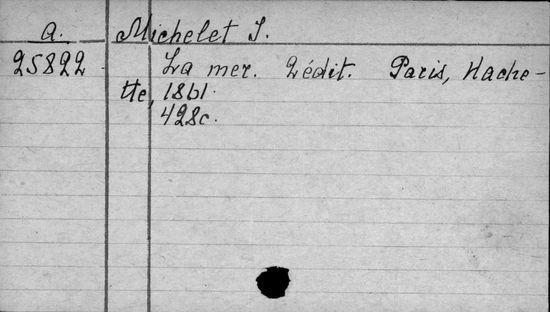 A. Michelet J.
25822 La mer. 2édit. Paris, Hache-
tte, 1861.
428c.